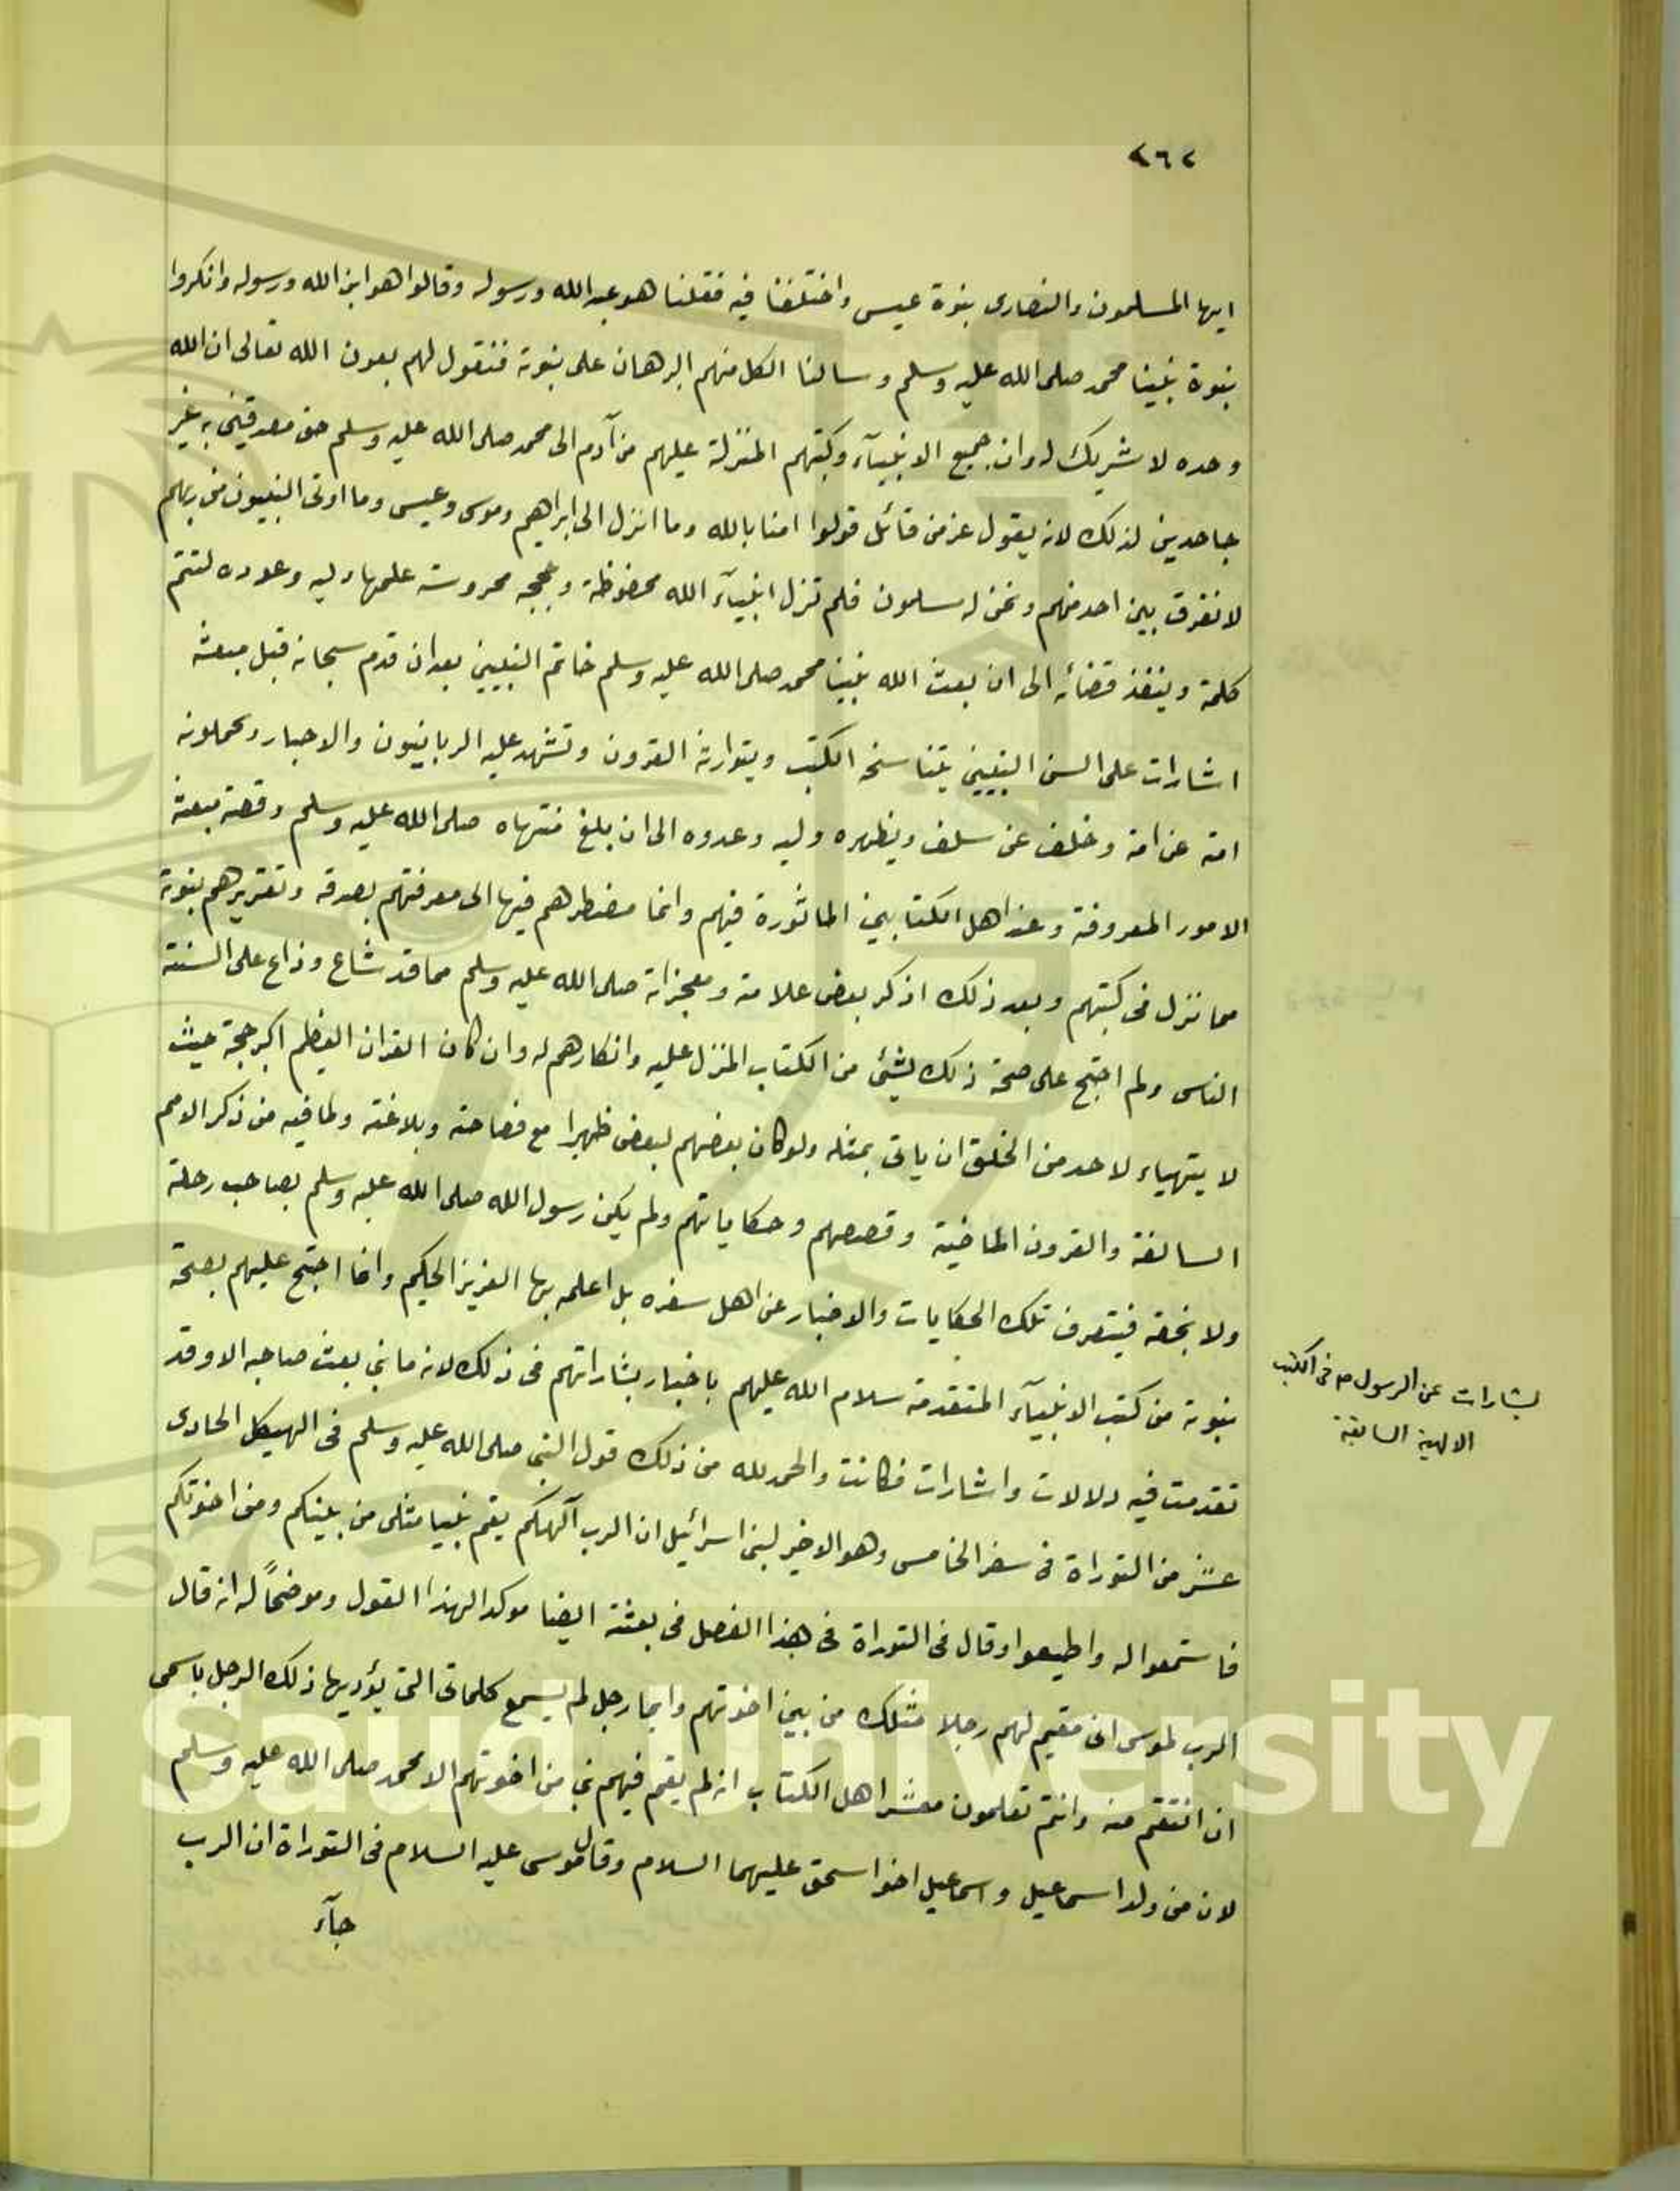 ٢٦٢
ايها المسلمون والنصارى بنبوة عيسى واختلفنا فيه فقلنا هو عبد الله ورسوله وقالوا هو ابن الله ورسوله وانكروا
نبوة نبينا محمد صلى الله عليه وسلم وسالنا الكل منهم البرهان على نبوته فنقول لهم بعون الله تعالى ان الله
وحده لا شريك له وان جميع الانبيآء وكتبهم المنزلة عليهم من آدم الى محمد صلى الله عليه وسلم حق مصدقين به غير
جاحدين لذلك لانه يقول عز من قائل قولوا امنا بالله وما انزل الى ابراهيم وموسى وعيسى وما اوتى النبيون من ربهم
لا نفرق بين احد منهم ونحن له مسلمون فلم تزل انبيآء الله محفوظة وحججه محروسة وليه وعدوه لتتم
كلمته وينفذ قضائه الى ان بعث الله نبينا محمد صلى الله عليه وسلم خاتم النبيين بعد ان قدم سبحانه قبل مبعثه
اشارات على السن النبيين يتناسخه الكتب ويتوارثه القرون وتشهد عليه الربانيون والاحبار ويحملونه
امة عن امة وخلف عن سلف ويظهره وليه وعدوه الى ان بلغ منتهاه صلى الله عليه وسلم وقصة مبعثه
الامور المعروفة وعند اهل الكتابين الماثورة فيهم وانما مضطرهم فيها الى معرفتهم بصدقه وتقريرهم بنبوته
مما نزل فى كتبهم وبعد ذلك اذكر بعض علامته ومعجزاته صلى الله عليه وسلم مما قد شاع وذاع على السنة
الناس ولم احتج على صحة ذلك بشئ من الكتاب المنزل عليه وانكارهم له وان كان القران العظيم اكبر حجة حيث
لا يتهياء لاحد من الخلق ان ياتى بمثله ولو كان بعضهم لبعض ظهيرا مع فصاحته وبلاغته ولما فيه من ذكر الامم
السالفة والقرون الماضية وقصصهم وحكاياتهم ولم يكن رسول الله صلى الله عليه وسلم بصاحب رحلة
ولا نجعة فيتعرف تلك الحكايات والاخبار عن اهل سفره بل اعلمه بها العزيز الحكيم وانما احتج عليهم بصحة
نبوته من كتب الانبيآء المتقدمة سلام الله عليهم باخبار بشاراتهم فى ذلك لانه ما نبى بعث صاحبه الا وقد
تقدمت فيه دلالات واشارات فكانت والحمد لله من ذلك قول النبى صلى الله عليه وسلم فى الهيكل الحادى
عشر من التوراة فى سفر الخامس وهو الاخير لبنى اسرائيل ان الرب آلهكم يقم نبيا مثلى من بينكم ومن اخوتكم
فاستمعوا له واطيعوا وقال فى التوراة فى هذا الفصل فى بعثته ايضا موكدا لهذا القول وموضحاً له انه قال
الرب لموسى انى مقيم لهم رجلا مثلك من بين اخوتهم وايما رجل لم يسمع كلماتى التى يؤديها ذلك الرجل باسمى
انا انتقم منه وانتم تعلمون معشر اهل الكتاب انه لم يقم فيهم نبى من اخوتهم الا محمد صلى الله عليه وسلم
لانه من ولد اسماعيل واسماعيل اخو اسحق عليهما السلام وقال موسى عليه السلام فى التوراة ان الرب
جآء
بشارات عن الرسول ص فى الكتب
الالهية السابقة
g Saud University